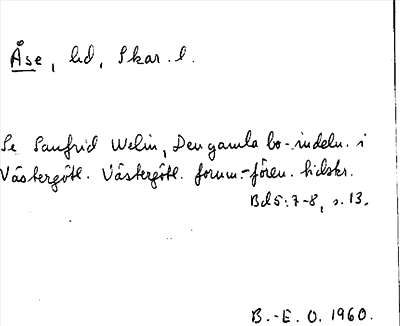 Åse, hd, Skar. l.
Se Sanfrid Welin, Den gamla bo-indeln. i
Västergötl. Västergötl. fornm.-fören. tidskr.
Bd 5: 7-8, s. 13.
B.-E. O. 1960.